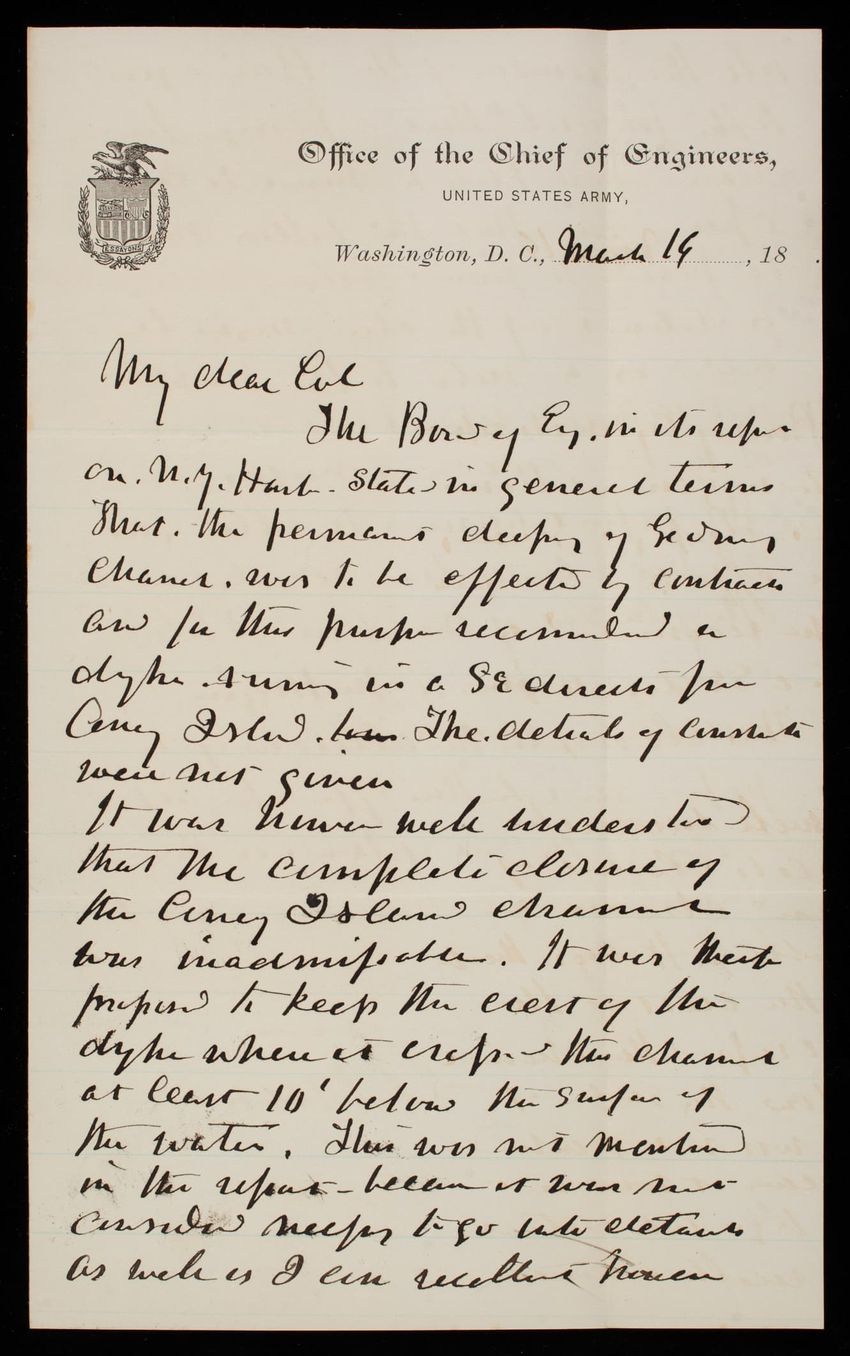 Office of the Chief of Engineers,
UNITED STATES ARMY,
Washington, D. C., March 19, 18
ESSAYONS
My dear Col
The Board of Eng. in its report
on. N.Y. Harb. States in general terms
that. the permanent deeping of Gedney
Channel. was to be effected by contraction
and for this purpose recommended a
dyke. running in a SE direction from
Coney Island. The. details of construction
were not given
It was however well understood
that the complete closure of
the Coney Island channel
was inadmissable. It was
proposed to keep the crest of the
dyke where it crossed this channel
at least 10' below the surface of
the water. This was not mentioned
in the report - because it was not
considered necessary to go into details
as well as I can recollect however